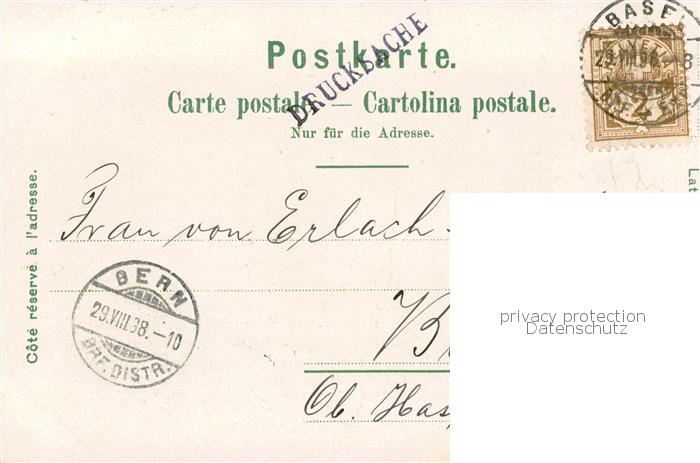 BASEL
29.VIII.98.–8
BRF. EXP.
2
Postkarte.
DRUCKSACHE
Carte postale — Cartolina postale.
Nur für die Adresse.
Côté réservé à l'adresse.
Lat
Frau von Erlach -
BERN
29.VIII.98.–10
BRF. DISTR.
B
Ob. Has
privacy protection
Datenschutz